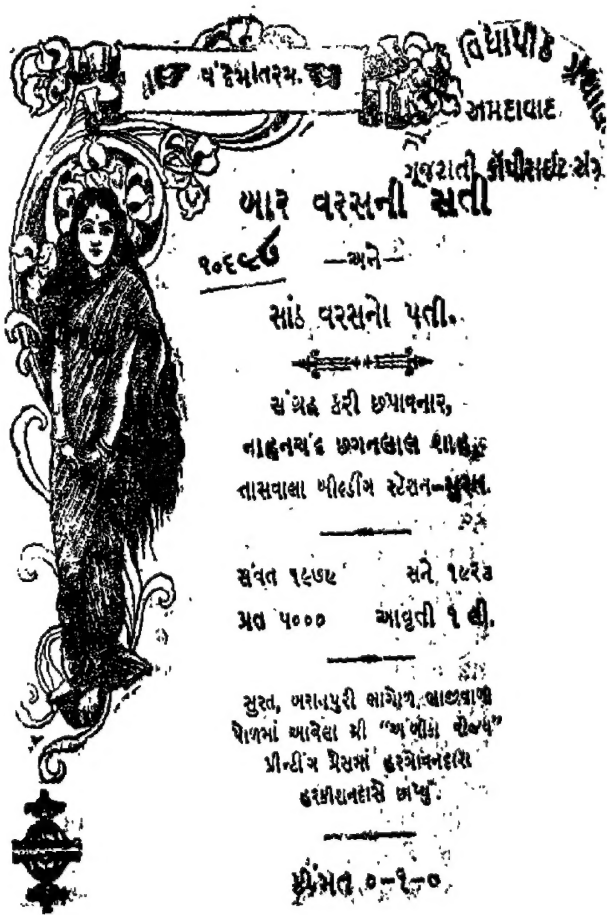 વંદેમાતરમ્.
વિદ્યાપીઠ
અમદાવાદ
ગૂજરાતી કૉપીરાઈટ સંગ્ર
બાર વરસની સતી
૧૦૬૯૭
—અને—
સાંઠ વરસનો પતી.
સંગ્રહ કરી છપાવનાર,
નાહનચંદ છગનલાલ શાહ,
તાસવાલા બીલ્ડીંગ સ્ટેશન–સુરત.
સંવત ૧૯૭૯ સને ૧૯૨૩
પ્રત ૫૦૦૦ આવૃતી ૧ લી.
સુરત, બરાનપુરી ભાગોળ, ભાજીવાળી
પોળમાં આવેલા શ્રી “અંબીકા વીજય”
પ્રીન્ટીંગ પ્રેસમાં હરગોવનદાસ
હરકીશનદાસે છાપ્યું.
કીંમત ૦–૧–૦